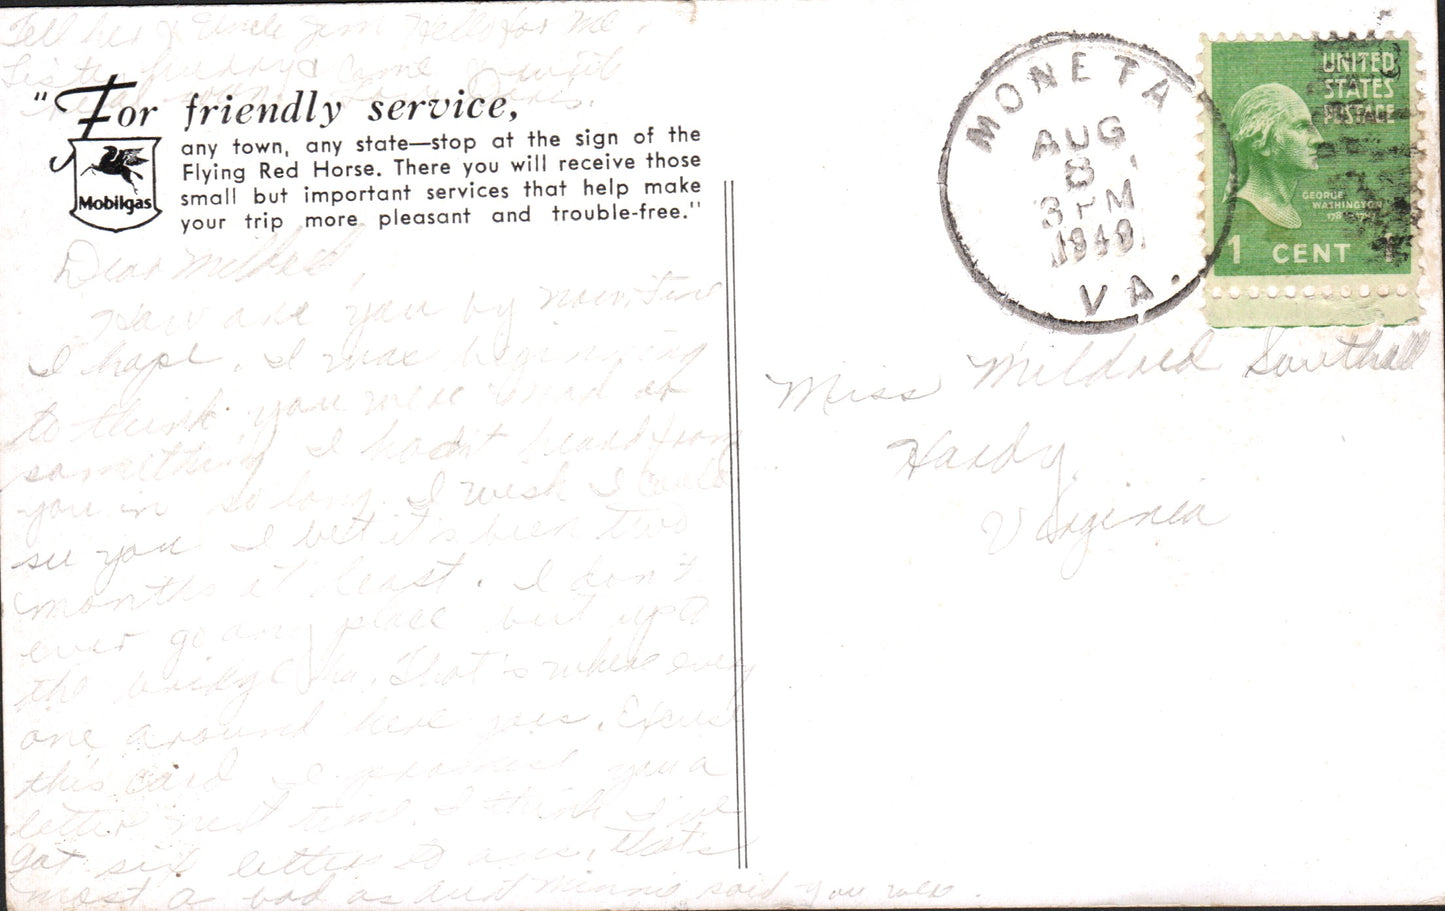 Tell her & Uncle Jim Hello for me.
Sister hurry & come & write
real soon. Love Doris.
"For friendly service,
any town, any state—stop at the sign of the
Flying Red Horse. There you will receive those
small but important services that help make
your trip more pleasant and trouble-free."
Mobilgas
Dear Mildred,
How are you by now, fine
I hope. I was beginning
to think you were mad or
something I hadn't heard from
you in so long. I wish I could
see you I bet it's been two
months at least. I don't
ever go any place but up to
the bridge. That's where every
one around here goes. Excuse
this card I promise you a
letter next time. I think I've
got six letters to ans. that's
most as bad as Aunt Minnie said you were.
MONETA
AUG
8
3 PM
1949
VA.
UNITED
STATES
POSTAGE
GEORGE
WASHINGTON
1 CENT 1
Miss Mildred Southall
Hardy
Virginia